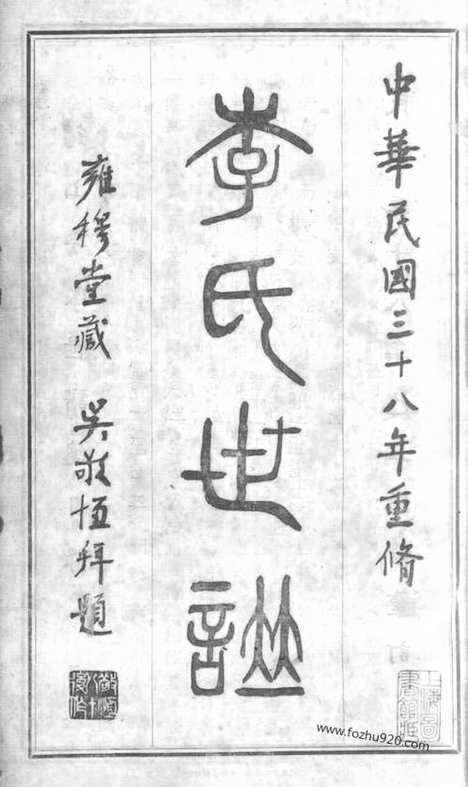 中華民國三十八年重脩
李氏世譜
雍穆堂藏 吳敬恆拜題
www.fozhu920.com